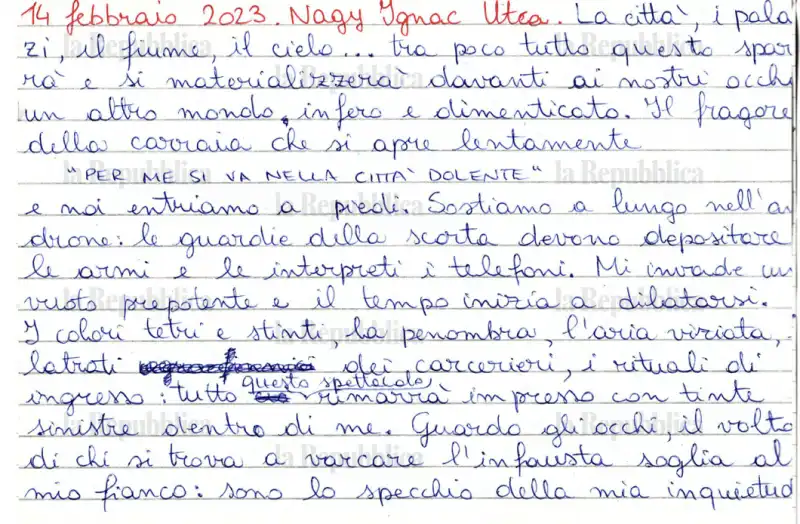 14 febbraio 2023. Nagy Ignac Utca. La città, i pala
zi, il fiume, il cielo... tra poco tutto questo spar
rà e si materializzerà davanti ai nostri occhi
un altro mondo, infero e dimenticato. Il fragore
della carraia che si apre lentamente
"PER ME SI VA NELLA CITTÀ DOLENTE"
e noi entriamo a piedi. Sostiamo a lungo nell'an
drone: le guardie della scorta devono depositare
le armi e le interpreti i telefoni. Mi invade un
vuoto prepotente e il tempo inizia a dilatarsi.
I colori tetri e stinti, la penombra, l'aria viziata,
latrati dei carcerieri, i rituali di
ingresso: tutto questo spettacolo rimarrà impresso con tinte
sinistre dentro di me. Guardo gli occhi, il volto
di chi si trova a varcare l'infausta soglia al
mio fianco: sono lo specchio della mia inquietud
la Repubblica